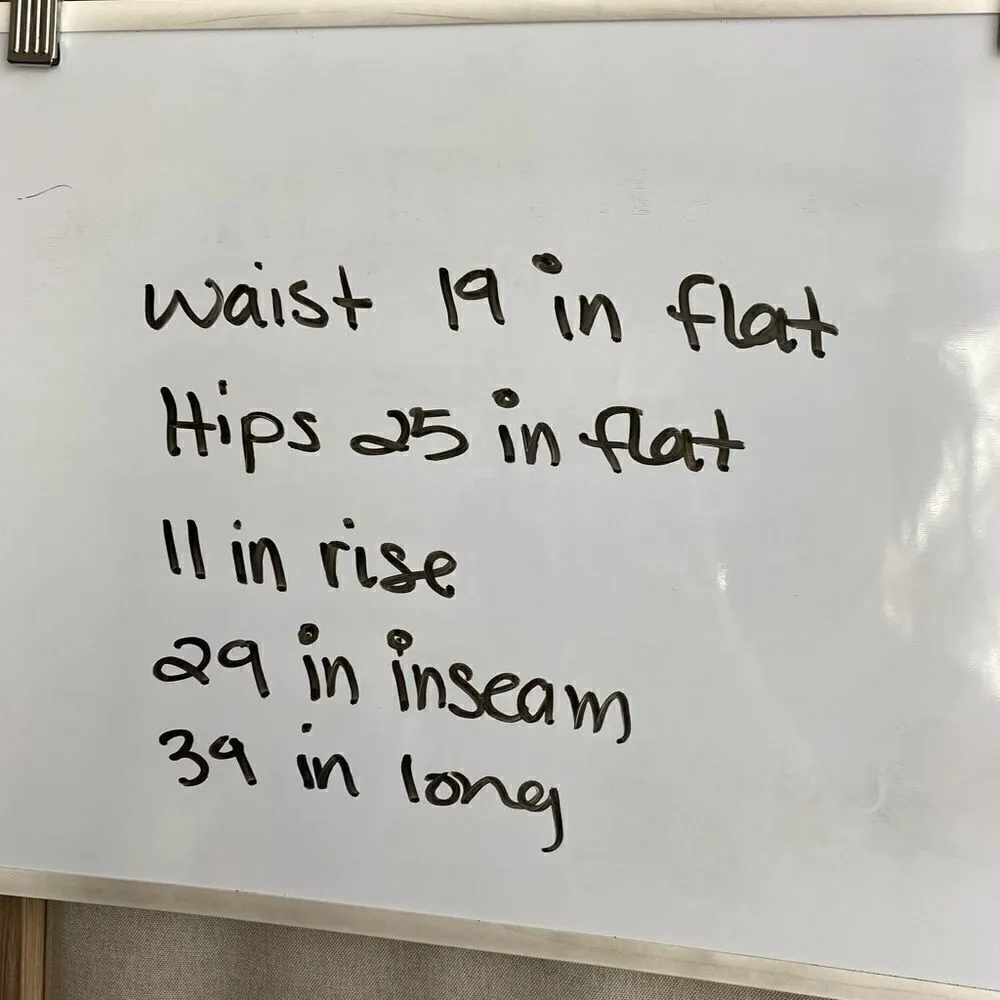 waist 19 in flat
Hips 25 in flat
11 in rise
29 in inseam
39 in long